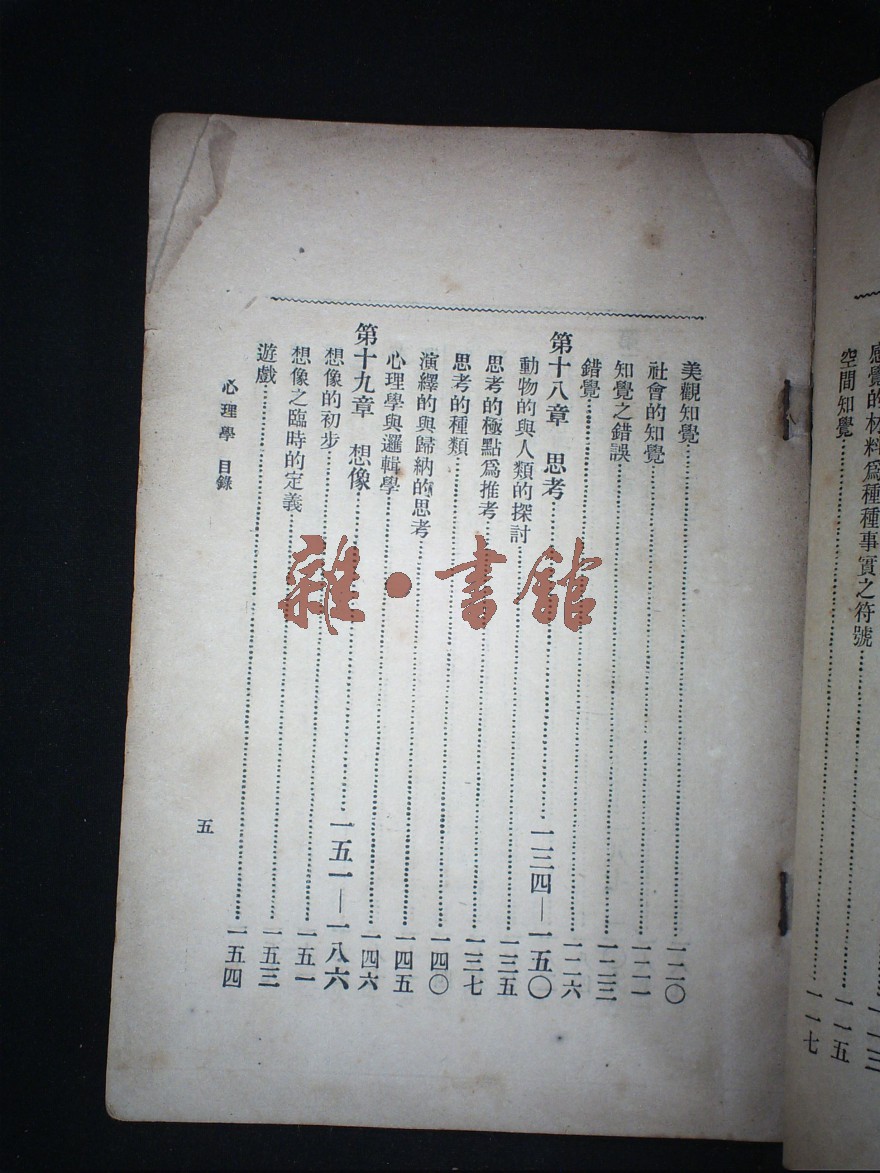 一一三
感覺的材料爲種種事實之符號……一一五
空間知覺……一一七
美觀知覺……一二〇
社會的知覺……一二一
知覺之錯誤……一二三
錯覺……一二六
第十八章　思考……一三四—一五〇
動物的與人類的探討……一三五
思考的極點爲推考……一三七
思考的種類……一四〇
演繹的與歸納的思考……一四五
心理學與邏輯學……一四六
第十九章　想像……一五一—一八六
想像的初步……一五一
想像之臨時的定義……一五三
遊戲……一五四
心理學　目錄　五
雜·書館